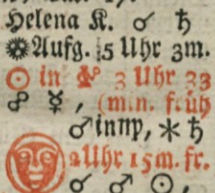 Helena K. ☌ ♄
Aufg. 5 Uhr 3m.
☉ in 3 Uhr 33
☍ ☿, (m.n. früh
♂ in ♍, ⚹ ♄
2 Uhr 15 m. fr.
☌ ♂ ☉,